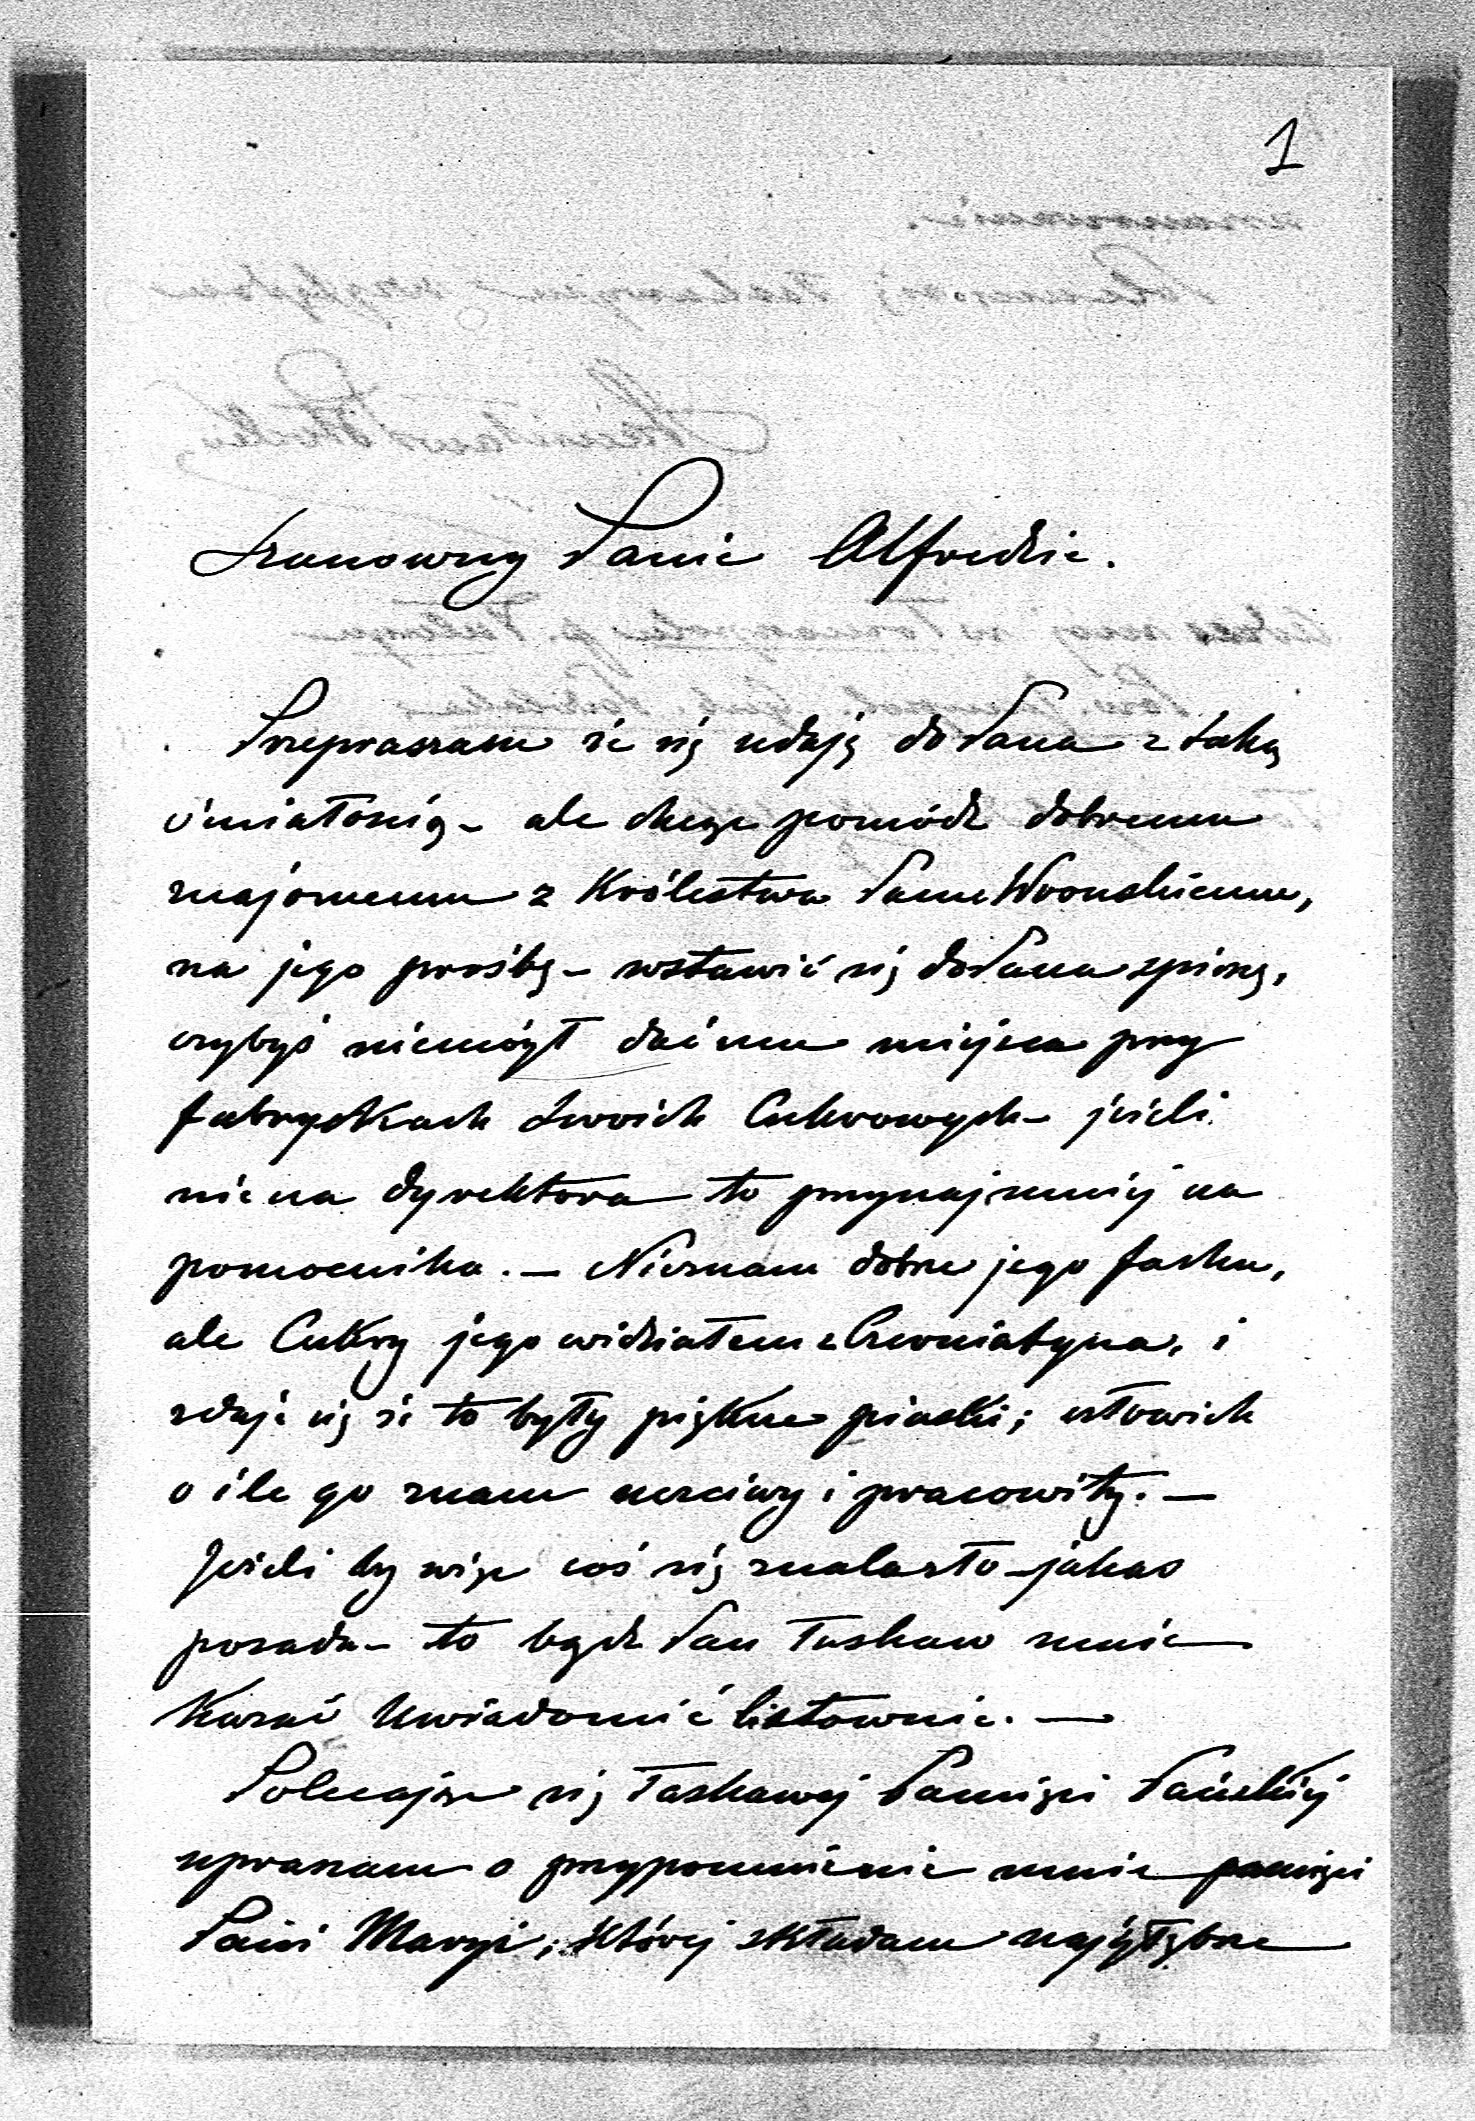 1
Szanowny Panie Alfredzie.
Przepraszam że się udaję do Pana z taką
śmiałością – ale chcąc pomódz dobremu
znajomemu z Królestwa Panu Wronskiemu,
na jego prośbę – wstawić się do Pana spieszę,
czybyś niemógł dać mu miejsca przy
fabrykach swoich Cukrowych – jeżeli
nie na dyrektora to przynajmniej na
pomocnika. — Nieznam dobrze jego fachu,
ale Cukry jego widziałem z Czerniatyna, i
zdaje się że to były piękne piaski; człowiek
o ile go znam uczciwy i pracowity. —
Jeżeli by więc coś się znalazło – jakaś
posada – to będź Pan łaskaw mnie
Kazać Uwiadomić listownie. —
Polecając się łaskawej Pamięci Pańskiej
upraszam o przypomnienie mnie pamięci
Pani Maryi, której składam najgłębsze